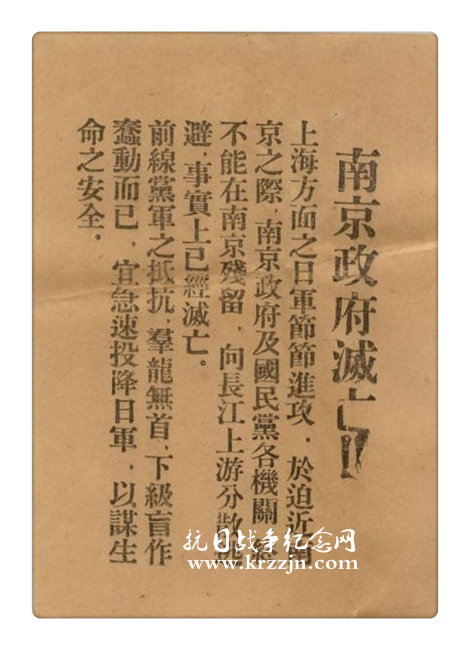 南京政府滅亡!!
上海方面之日軍節節進攻，於迫近南
京之際，南京政府及國民黨各機關
不能在南京殘留，向長江上游分散逃
避，事實上已經滅亡。
前線黨軍之抵抗，羣龍無首，下級盲作
蠢動而已，宜急速投降日軍，以謀生
命之安全。
抗日战争纪念网
www.krzzjn.com